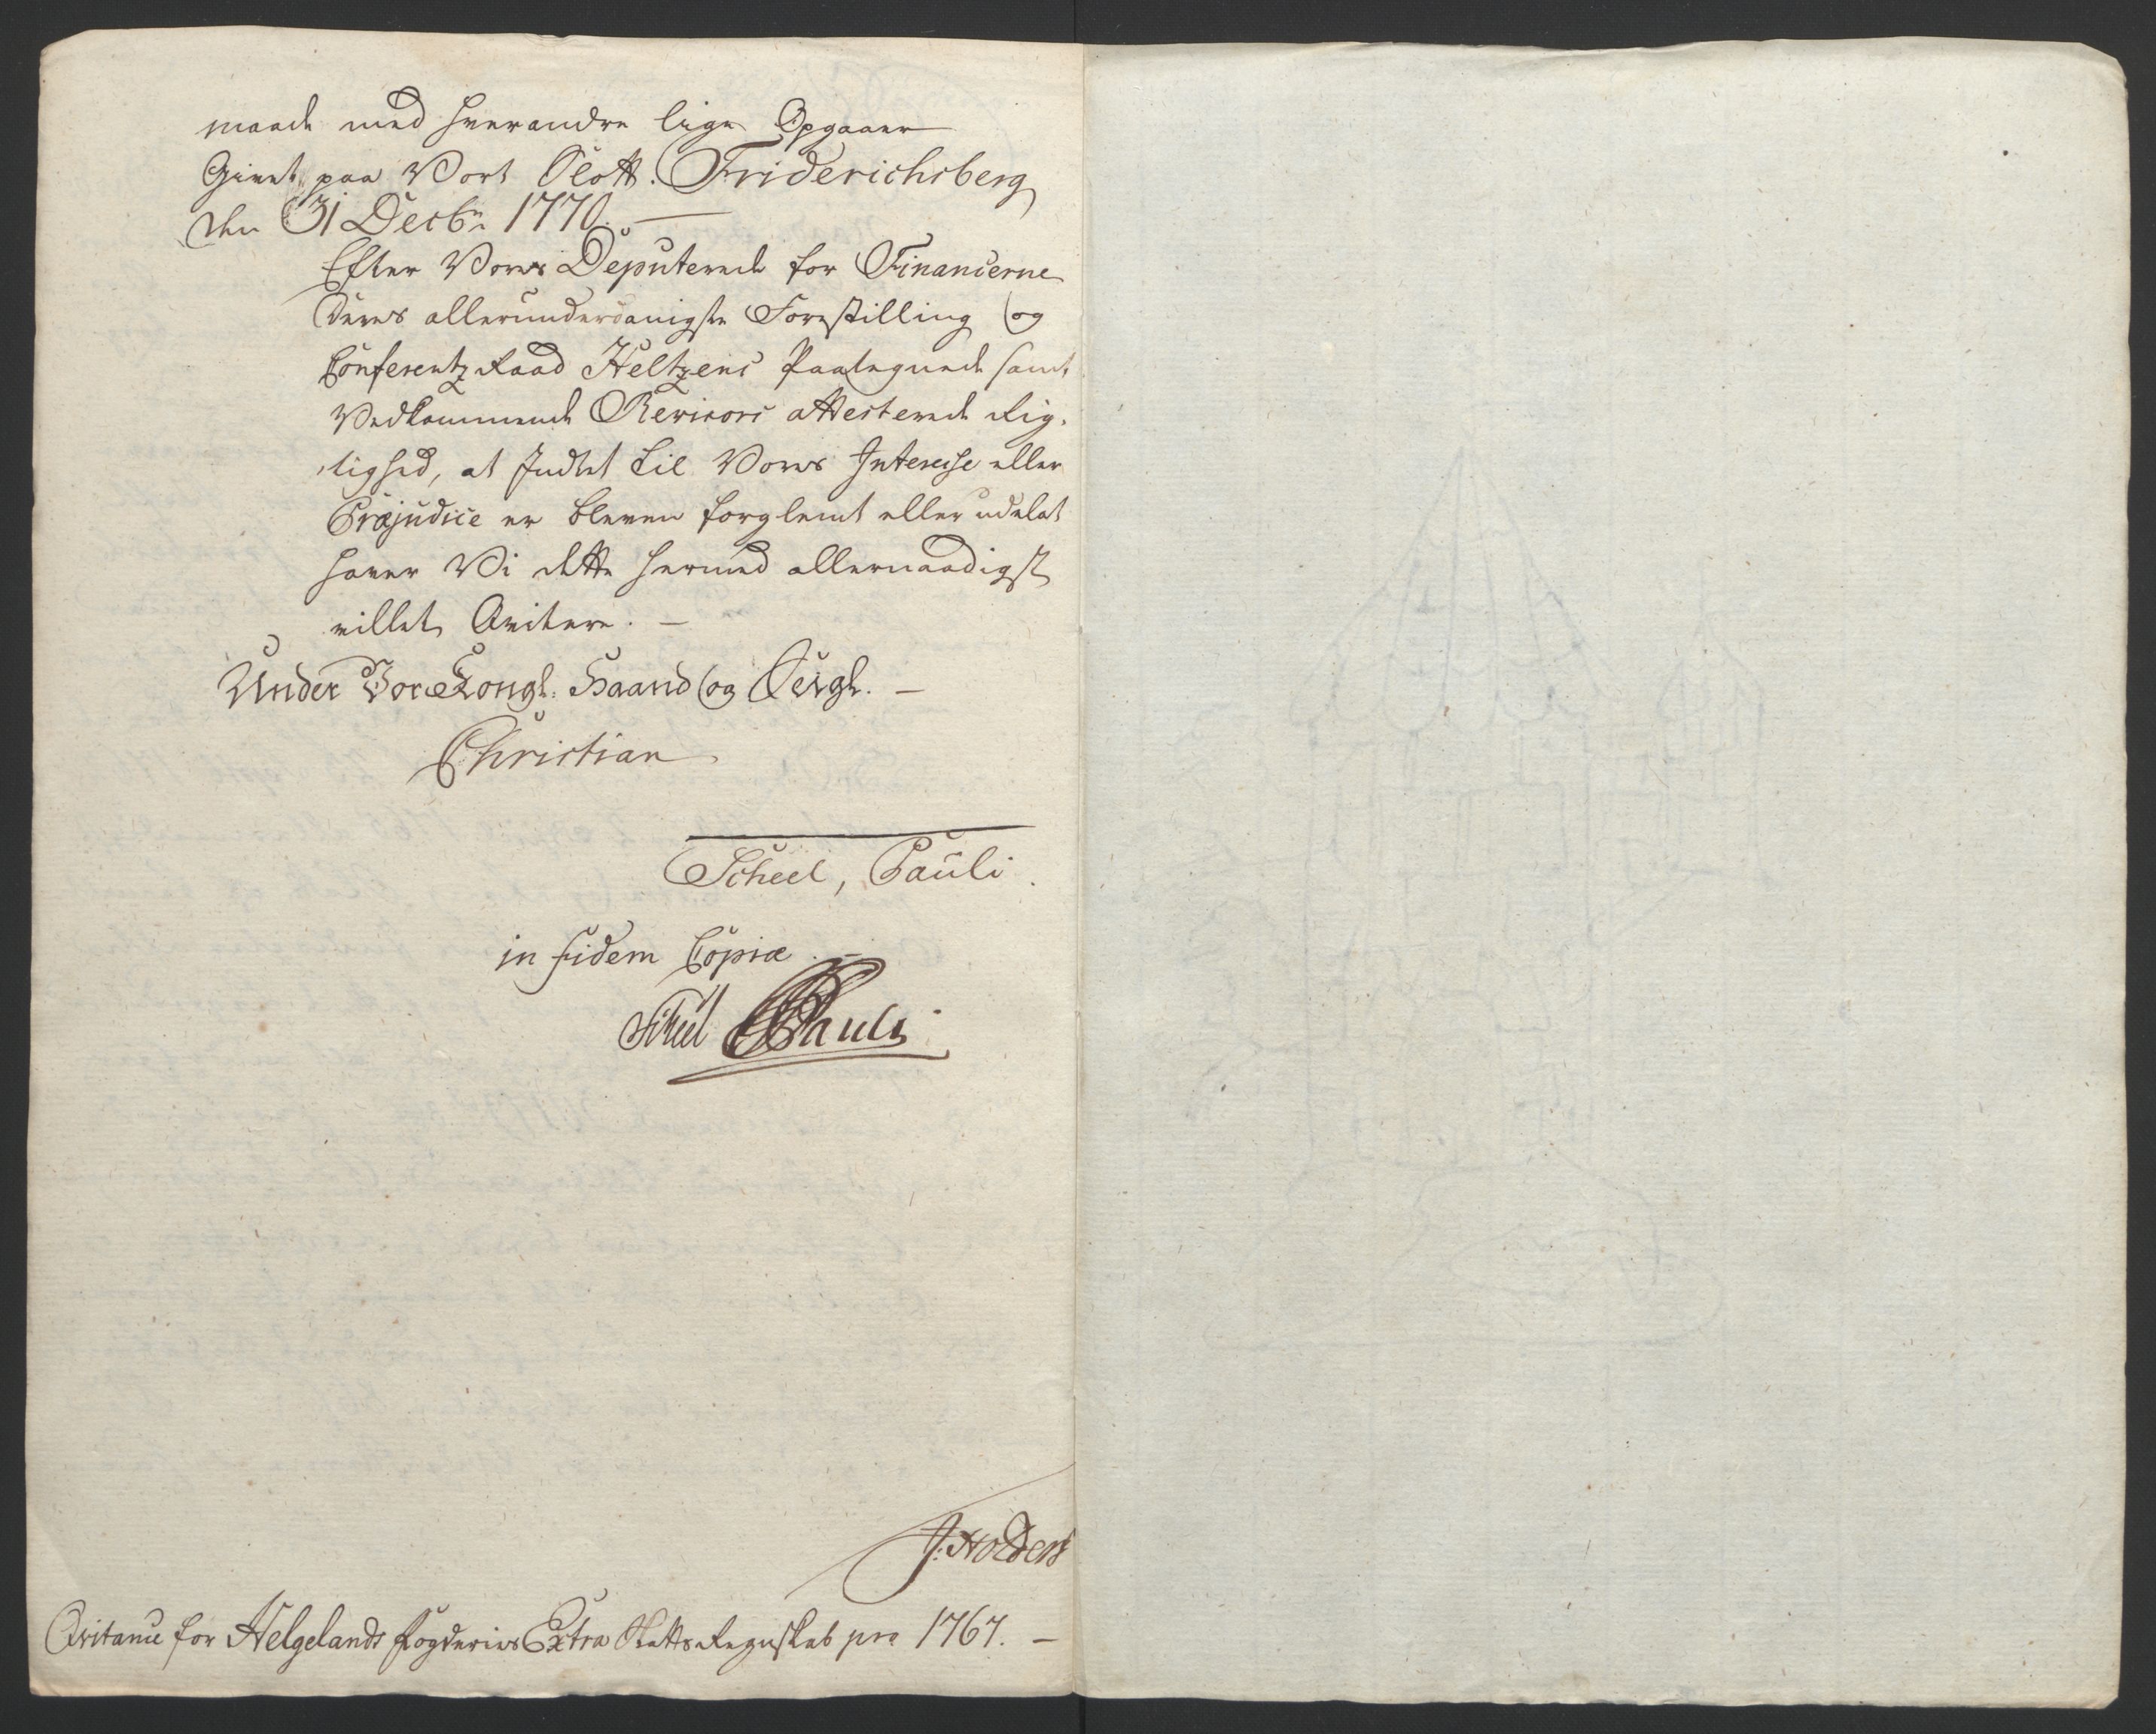 maade med hverandre lige Opgaaer
Givet paa Vort Slott Friderichsberg
den 31 Decbr 1770. —
Efter Vores Deputerede for Financerne
Deres allerunderdanigste Forestilling og
Conferentz Raad Heltzens Paategnede samt
Vedkommende Revisors attesterede Rig-
tighed, at Indtet til Vores Interesse eller
Præjudice er bleven forglemt eller udelat
haver Vi dette hermed allernaadigst
villet Qvitere. —
Under Vor Kongl: Haand og Seigl. —
Christian
Scheel, Pauli.
in fidem Copiæ. —
Scheel Pauli
J: Holders
Qvitance for Helgelands Fogderies Extra Skatts Regnskab pro 1767. —